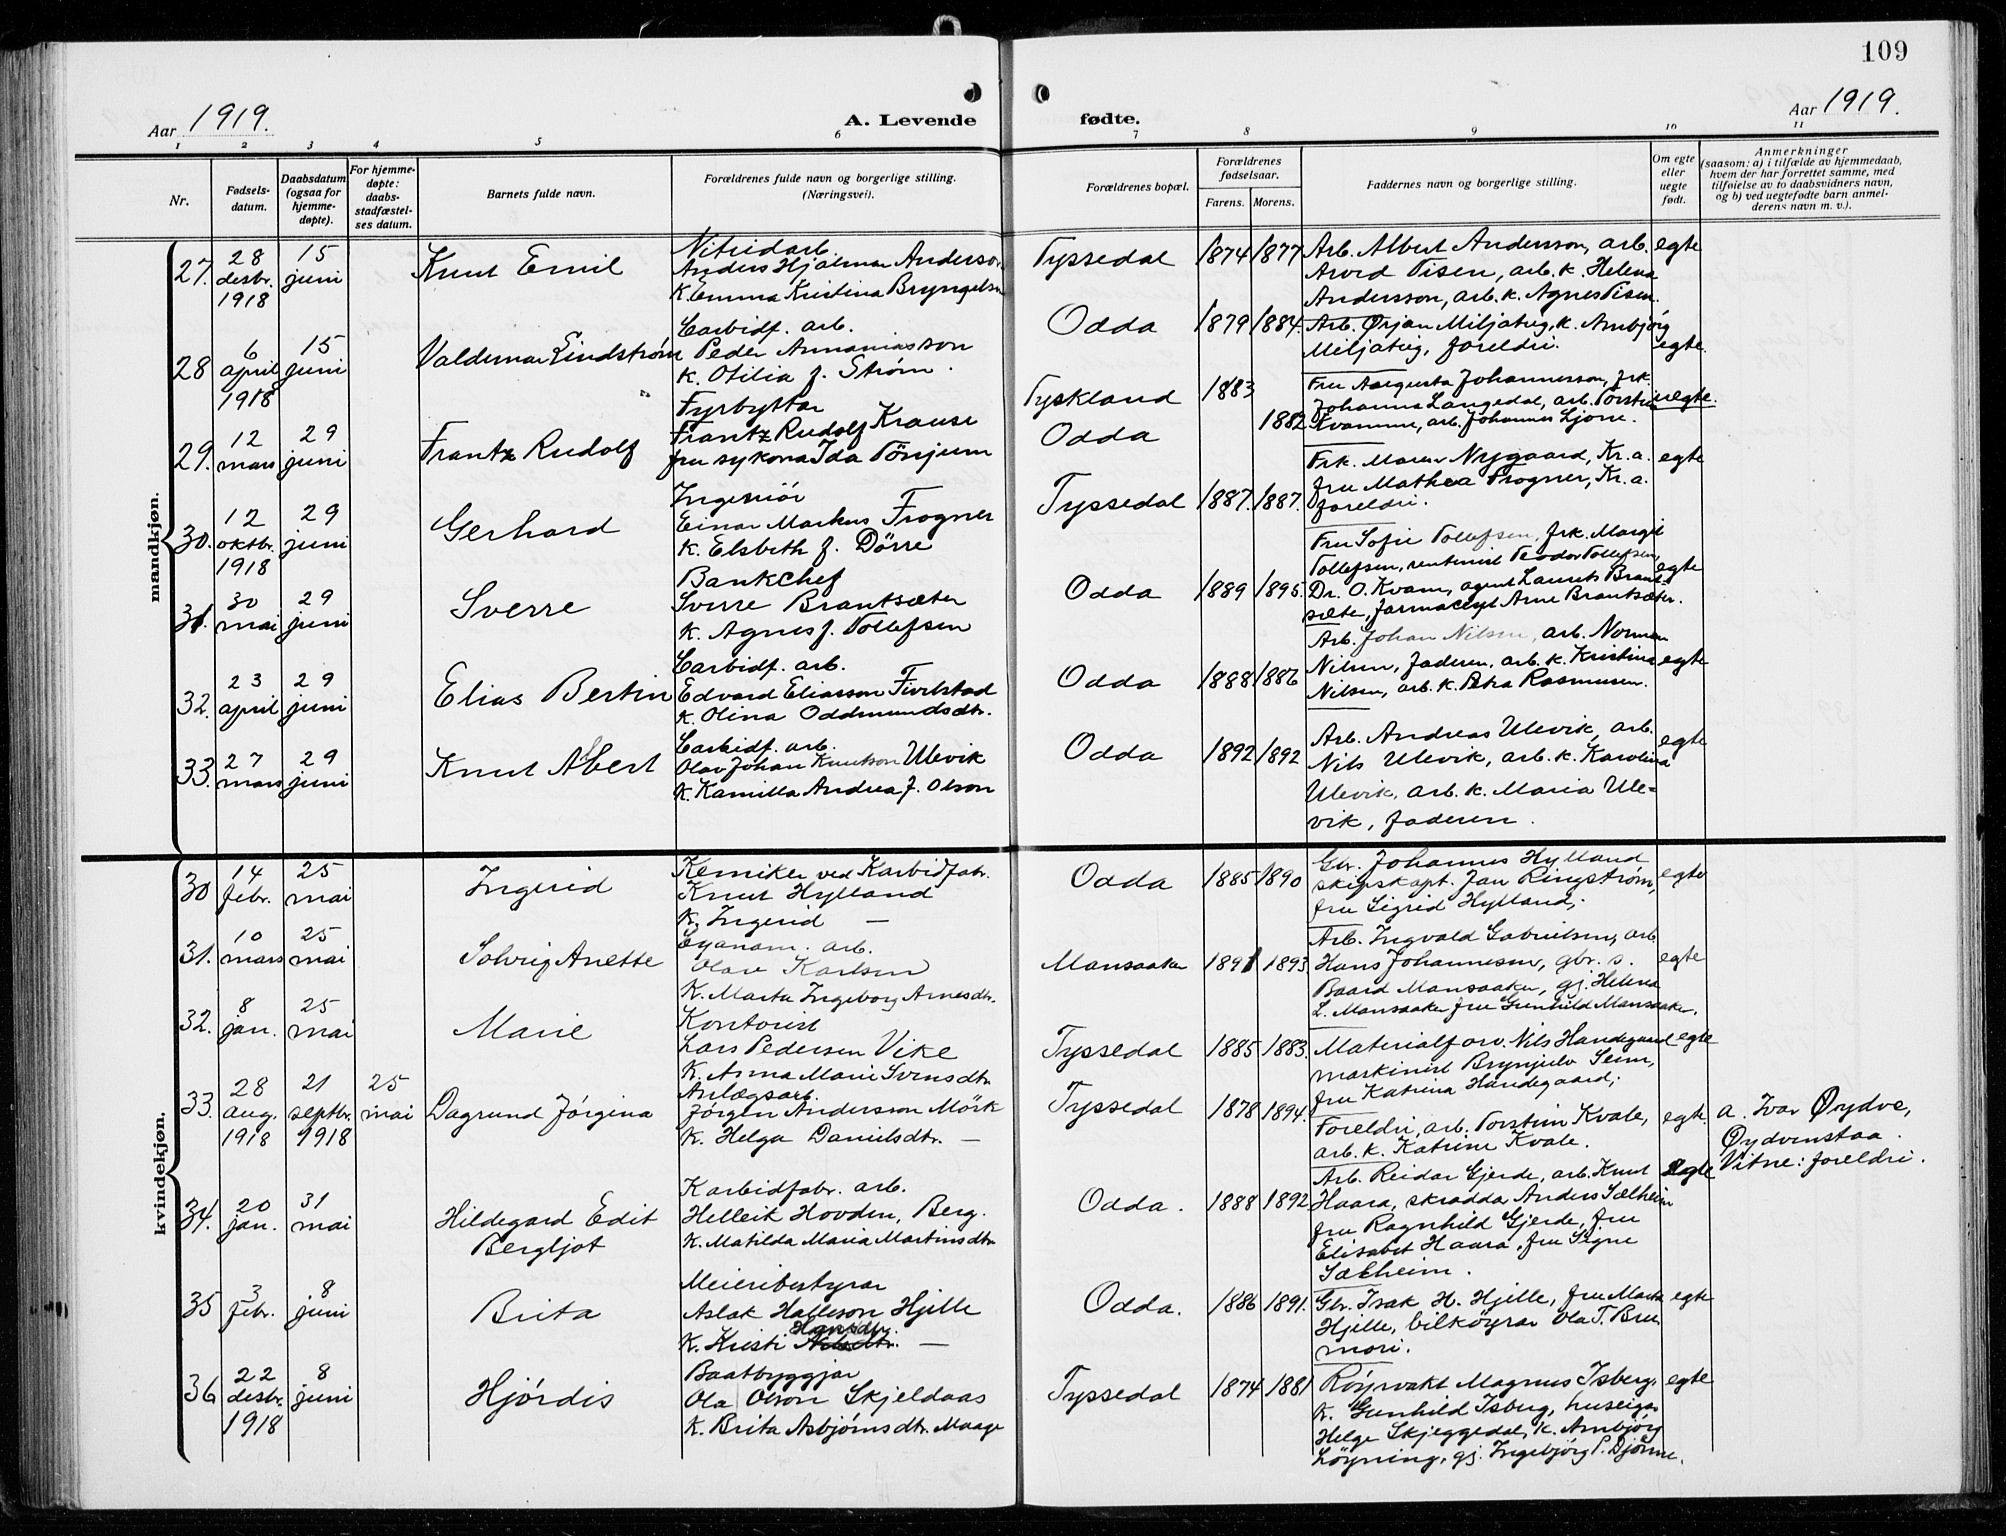 109
Aar 1919.
A. Levende
fødte.
Aar 1919.
1 2 3 4 5 6 7 8 9 10 11
Nr.
Fødsels-
datum.
Daabsdatum
(ogsaa for
hjemme-
døpte).
For hjemme-
døpte:
daabs-
stadfæstel-
ses datum.
Barnets fulde navn.
Forældrenes fulde navn og borgerlige stilling.
(Næringsvei).
Forældrenes bopæl.
Forældrenes
fødselsaar.
Farens. Morens.
Faddernes navn og borgerlige stilling.
Om egte
eller
uegte
født.
Anmerkninger
(saasom: a) i tilfælde av hjemmedaab,
hvem der har forrettet samme, med
tilføielse av to daabsvidners navn,
og b) ved uegtefødte barn anmel-
derens navn m. v.).
mandkjøn.
27. 28 desbr. 1918
15 juni
Knut Emil
Nitridarb.
Anders Hjalmar Anderson
K. Emma Kristina Bryngelsn
Tyssedal 1874 1877
Arb. Albert Andersson, arb.
Arvid Tisen, arb. k. Helena
Andersson, arb. k. Agnes Tisen.
egte
28 6 april 1918
15 juni
Valdemar Lindstrøm
Carbidf. arb.
Peder Annaniasson
K. Otilia f. Strøm.
Odda 1879 1884.
Arb. Ørjan Miljateig, k. Ambjørg
Miljateig, foreldri.
egte.
29. 12 mars
29 juni
Frantz Rudolf
Fyrbyttar
Frantz Rudolf Krause
fru sykona Ida Tönjum
Tyskland 1883
Odda 1882
Fru Augusta Johannesson, frk.
Johanna Langedal, arb. Torstein
Kvamme, arb. Johannes Ljone.
uegte.
30. 12 oktbr. 1918
29 juni
Gerhard
Ingeniør
Einar Markus Frogner
K. Elsbeth f. Dörre
Tyssedal 1887. 1887.
Frk. Maren Nygaard, Kr.a.
fru Mathea Frogner, Kr.a.
foreldri.
egte
31. 30 mai
29 juni
Sverre
Bankchef
Sverre Brantsæter
K. Agnes f. Tollefsen
Odda 1889 1895.
Fru Sofie Tollefsen, frk. Margit
Tollefsen, rentenist Teodor Tollefsen,
Dr. O. Kvam, agent Laurits Brant-
sæte, farmaceyt Arne Brantsæter.
egte
32. 23 april
29 juni
Elias Bertin
Carbidf. arb.
Edvard Eliasson Fivelstad
K. Olina Oddmundsdtr.
Odda 1888 1886
Arb. Johan Nilsen, arb. Norman
Nilsen, faderen, arb. k. Kristina
Nilsen, arb. k. Petra Rasmusen.
egte
33. 27 mars
29 juni
Knut Albert
Carbidf. arb.
Olav Johan Knutson Ulevik
K. Kamilla Andrea f. Olson
Odda 1892 1892
Arb. Andreas Ulevik, arb.
Nils Ulevik, arb. k. Karolina
Ulevik, arb. k. Maria Ule-
vik, faderen.
egte
kvindekjøn.
30 14 febr.
25 mai
Ingerid
Kemiker ved Karbidfabr.
Knut Hylland
K. Ingerid —
Odda 1885 1890
Gbr. Johannes Hylland
skipskapt. Jan Ringstrøm,
fru Sigrid Hylland.
egte
31. 10 mars
25 mai
Solveig Anette
Cyanam. arb.
Olav Karlsen
K. Marta Ingeborg Arnesdtr.
Mansaaker 1891 1893
Arb. Ingvald Gabrielsen, arb.
Hans Johannesen, gbr. s.
Baard Mansaaker, gj. Helena
L. Mansaaker fru Gunhild Mansaaker.
egte
32. 8 jan.
25 mai
Marie
Kontorist
Lars Pedersen Vike
K. Anna Marie Svensdtr
Tyssedal 1885 1883.
Materialforv. Nils Handegaard
maskinist Brynjulv Seim,
fru Katrina Handegaard.
egte
33. 28 aug. 1918
21 septbr. 1918
25 mai
Dagrund Jørgina
Anlægsarb.
Jørgen Andersson Mörk
K. Helga Danielsdtr. —
Tyssedal 1878 1894.
Foreldri, arb. Torstein Kvale,
arb. k. Katrine Kvale.
egte.
a. Ivar Øydve,
Øydvenstaa.
Vitne: foreldri.
34. 20 jan.
31 mai
Hildegard Edit
Bergljot
Karbidfabr. arb.
Helleik Hovden, Berg.
K. Matilda Maria Martinsdtr
Odda. 1888 1892
Arb. Reidar Gjerde, arb. Knut
Haara, skradda Anders Sælheim
fru Ragnhild Gjerde, fru
Elisabet Haara, fru Signe
Sælheim.
egte
35 3 febr.
8 juni
Brita
Meieribestyrar
Aslak Halleson Hjelle
Hansdtr.
K. Kristi —
Odda. 1886 1891.
Gbr. Isak H. Hjelle, fru Marta
Hjelle, bilköyrar Ola T. Bru
mori.
egte
36 22 desbr. 1918
8 juni
Hjørdis
Baatbyggjar
Ola Olson Skjeldaas
K. Brita Asbjørnsdtr. Maage
Tyssedal 1874 1881
Röyrvakt Magnus Isberg,
K. Gunhild Isberg, huseigar
Helge Skjeggedal, K. Ambjörg
Löyning, gj. Ingebjörg P. Djönne.
egte